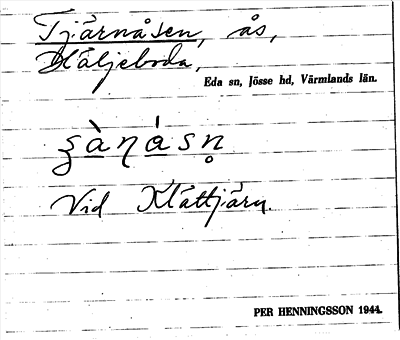 Tjärnåsen, ås,
Häljeboda,
Eda sn, Jösse hd, Värmlands län.
Vid Klättjärn.
PER HENNINGSSON 1944.